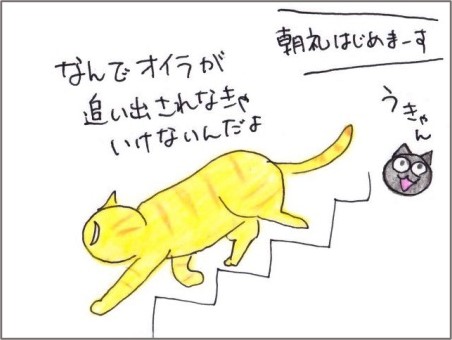 朝礼はじめまーす
うきゃん
なんでオイラが
追い出されなきゃ
いけないんだよ